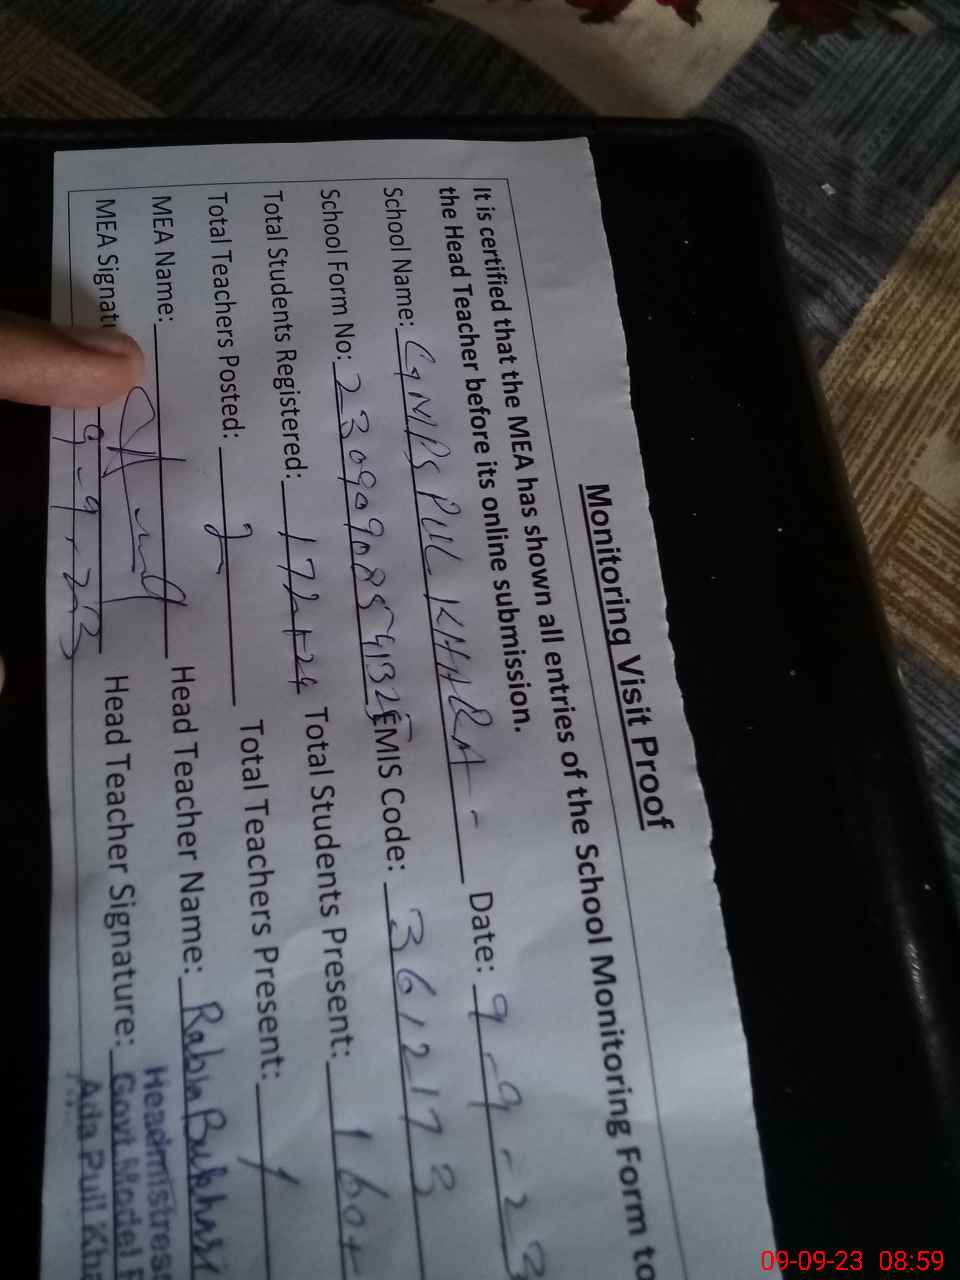 Monitoring Visit Proof
It is certified that the MEA has shown all entries of the School Monitoring Form to
the Head Teacher before its online submission.
School Name: GMPS PUL KHARA - Date: 9-9-23
School Form No: 2309090859132 EMIS Code: 3612173
Total Students Registered: 172+24 Total Students Present: 160+
Total Teachers Posted: 2 Total Teachers Present: 1
MEA Name: Head Teacher Name: Rabia Bukhari
MEA Signatu 9-9-23 Head Teacher Signature:
Headmistress
Govt Model P
Ada Pull Kha
09-09-23 08:59